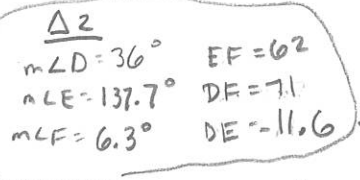 Δ2
m∠D = 36° EF = 62
m∠E = 137.7° DF = 71
m∠F = 6.3° DE = 11.6